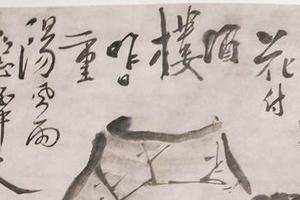 花付
酒
樓
昨日
重
陽風雨